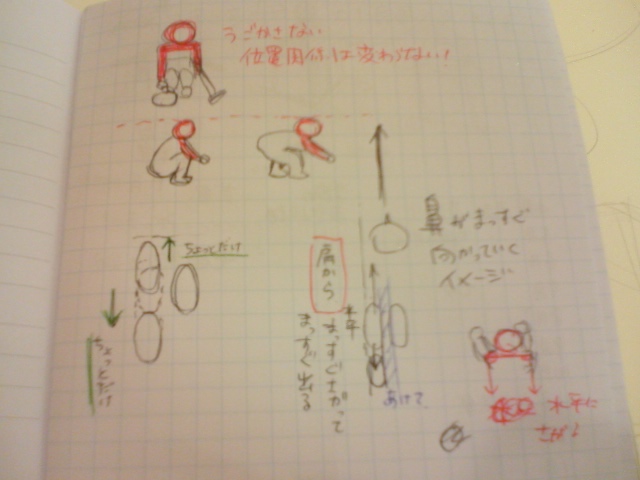 うごかさない
位置関係は変わらない!
ちょっとだけ
ちょっとだけ
肩から
水平
まっすぐさがって
まっすぐ出る
鼻がまっすぐ
向かっていく
イメージ
あけて
水平に